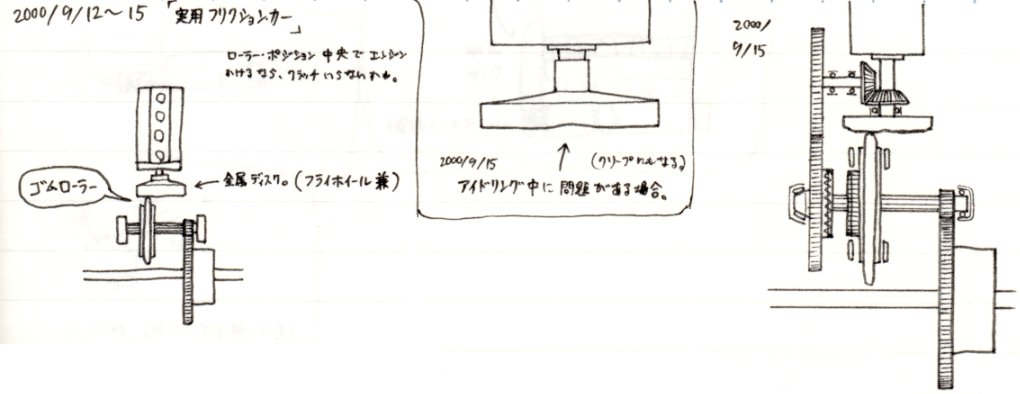 2000/9/12〜15 「実用フリクションカー」
ローラー・ポジション 中央で エンジン
かけるなら、クラッチ いらないわね。
ゴムローラー
金属ディスク。(フライホイール兼)
2000/9/15 (クリープ
アイドリング中に 問題がある場合。
2000/
9/15